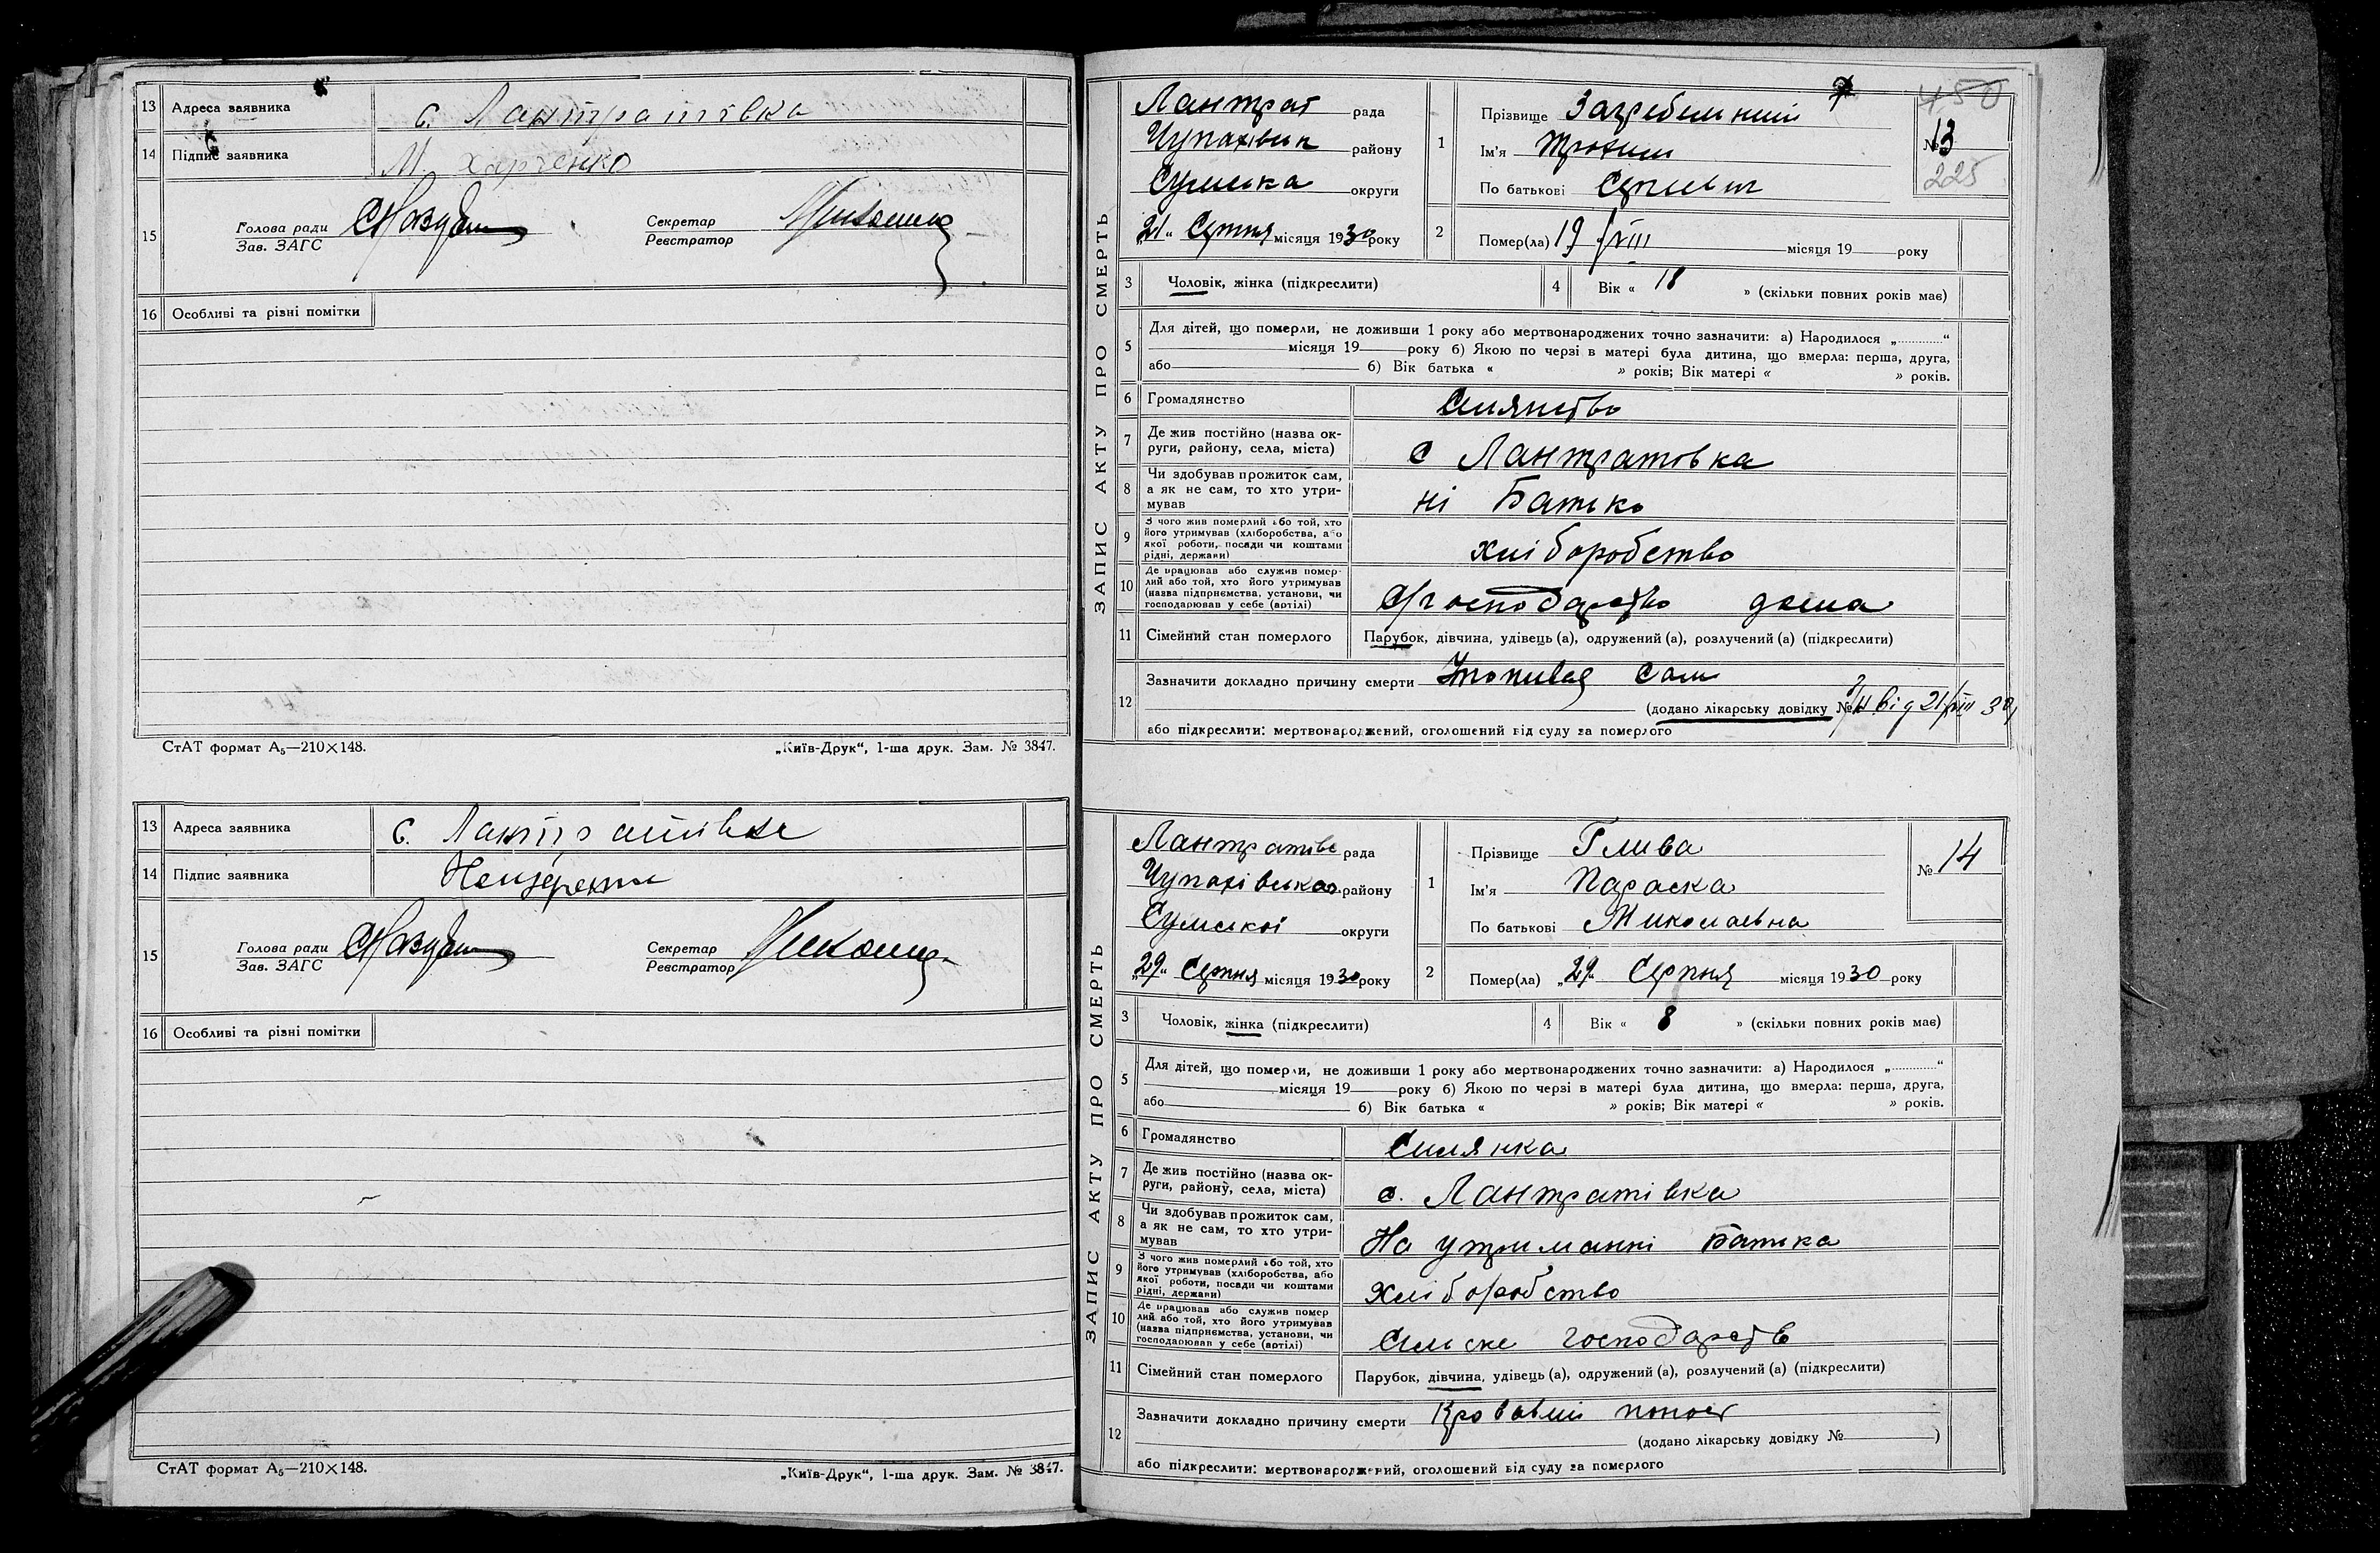 13 Адреса заявника с. Лантратівка
14 Підпис заявника М. Харченко
15 Голова ради
Зав. ЗАГС
Секретар
Реєстратор
16 Особливі та різні помітки
СтАТ формат А₅—210×148. „Київ-Друк“, 1-ша друк. Зам. № 3847.
13 Адреса заявника с. Лантратівка
14 Підпис заявника
15 Голова ради
Зав. ЗАГС
Секретар
Реєстратор
16 Особливі та різні помітки
СтАТ формат А₅—210×148. „Київ-Друк“, 1-ша друк. Зам. № 3847.
ЗАПИС АКТУ ПРО СМЕРТЬ
Лантрат рада
Чупахівськ району
Сумська округи
„21“ Серпня місяця 1930 року
1 Прізвище Загребельний
Ім'я Трохим
По батькові
450
№ 13
225
2 Помер(ла) 19/VIII місяця 19 року
3 Чоловік, жінка (підкреслити)
4 Вік « 18 » (скільки повних років має)
5 Для дітей, що померли, не доживши 1 року або мертвонароджених точно зазначити: а) Народилося „ “
місяця 19 року б) Якою по черзі в матері була дитина, що вмерла: перша, друга,
або б) Вік батька « » років; Вік матері « » років.
6 Громадянство Селянство
7 Де жив постійно (назва ок-
руги, району, села, міста) с Лантратовка
8 Чи здобував прожиток сам,
а як не сам, то хто утри-
мував ні Батько
9 З чого жив померлий або той, хто
його утримував (хліборобства, або
якої роботи, посади чи коштами
рідні, держави) хліборобство
10 Де працював або служив помер-
лий або той, хто його утримував
(назва підприємства, установи, чи
господарював у себе (артілі) С/господарство дома
11 Сімейний стан померлого Парубок, дівчина, удівець (а), одружений (а), розлучений (а) (підкреслити)
12 Зазначити докладно причину смерти Утопився сам
(додано лікарську довідку № б/н від 21/VIII 30)
або підкреслити: мертвонароджений, оголошений від суду за померлого
ЗАПИС АКТУ ПРО СМЕРТЬ
Лантратовс рада
Чупахівська району
Сумської округи
„29“ Серпня місяця 1930 року
1 Прізвище Глива
Ім'я Параска
По батькові Миколаевна
№ 14
2 Помер(ла) „29“ Серпня місяця 1930 року
3 Чоловік, жінка (підкреслити)
4 Вік « 8 » (скільки повних років має)
5 Для дітей, що померли, не доживши 1 року або мертвонароджених точно зазначити: а) Народилося „ “
місяця 19 року б) Якою по черзі в матері була дитина, що вмерла: перша, друга,
або б) Вік батька « » років; Вік матері « » років.
6 Громадянство Силянка
7 Де жив постійно (назва ок-
руги, району, села, міста) с. Лантратівка
8 Чи здобував прожиток сам,
а як не сам, то хто утри-
мував На утриманні Батька
9 З чого жив померлий або той, хто
його утримував (хліборобства, або
якої роботи, посади чи коштами
рідні, держави) Хліборобство
10 Де працював або служив помер
лий або той, хто його утримував
(назва підприємства, установи, чи
господарював у себе (артілі) Сильске господарств
11 Сімейний стан померлого Парубок, дівчина, удівець (а), одружений (а), розлучений (а) (підкреслити)
12 Зазначити докладно причину смерти Кровавий понос
(додано лікарську довідку № )
або підкреслити: мертвонароджений, оголошений від суду за померлого